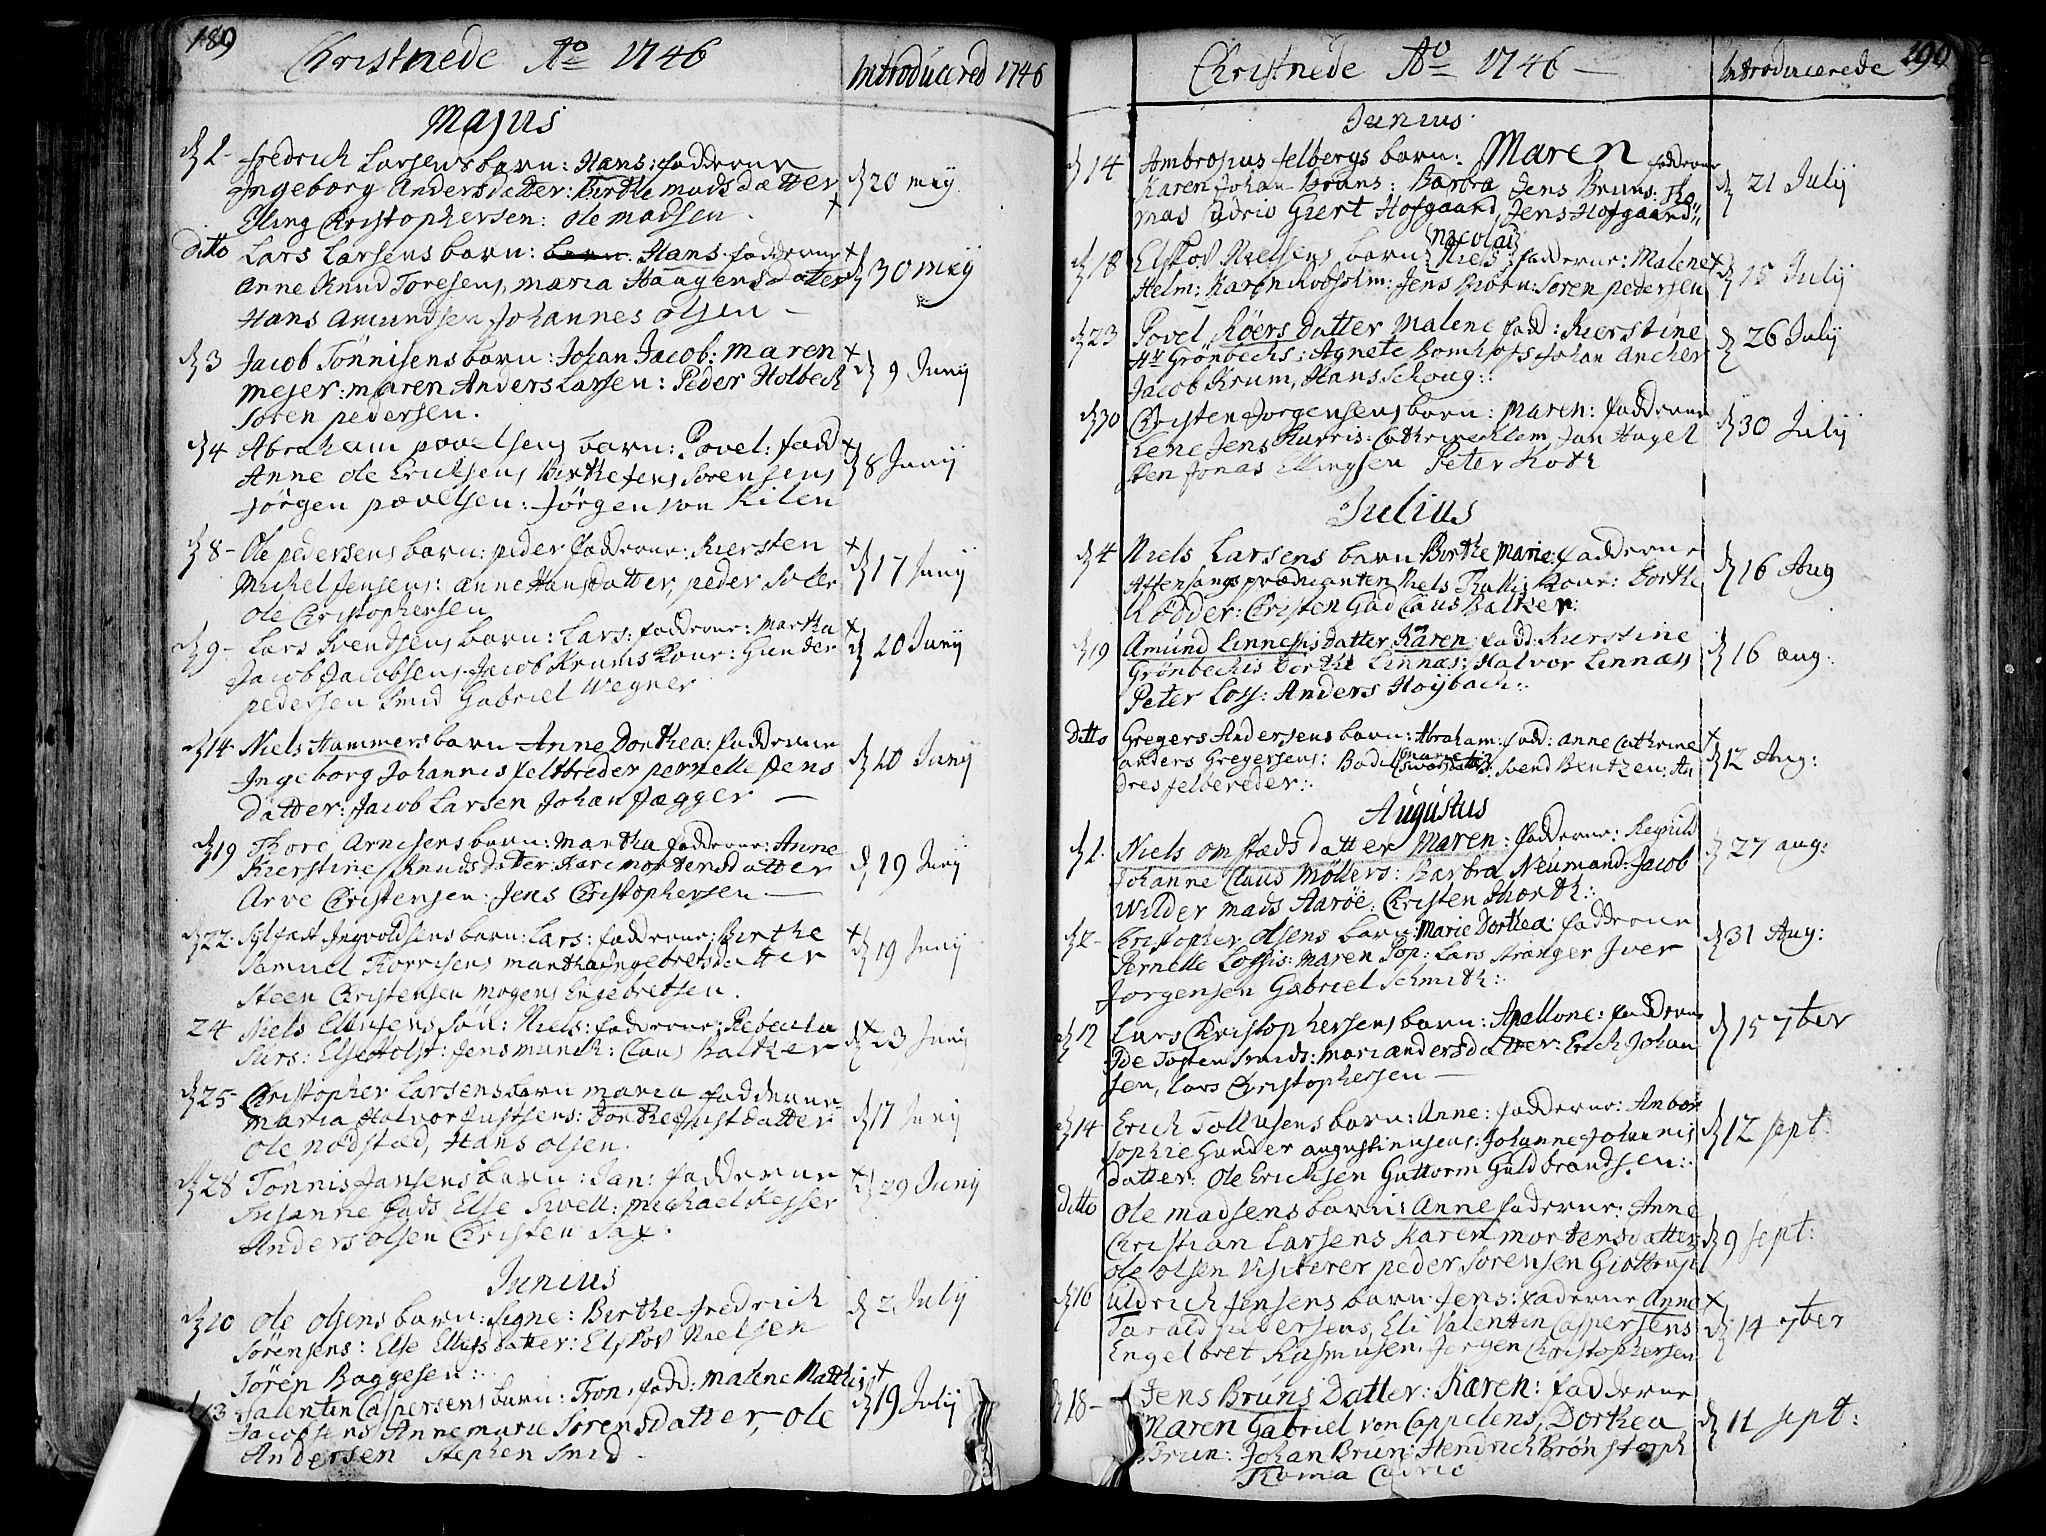 189
Christnede Ao 1746
Introduced 1746
Majus
d 1- fredrich Larsens barn: Hans: fadderne
Ingeborg Andersdatter: Birthe madsdatter
Elling Christophersen: ole madsen.
d 20 maij
ditto Lars Larsens barn: Hans fadderne
Anne Knud Toresens, maria Haagensdatter
Hans Amundsen Johannes olsen -
d 30 maij
d 3 Jacob Tönnisens barn: Johan Jacob: maren
mejer: maren Anders Larsen: Peder Holbech
Soren pedersen.
d 9 Junij
d 4 Abraham povelsens barn: Povel: fadd
Anne ole Ericksens Birthe Jens Sorensens
Jörgen povelsen: Jörgen von Kilen
d 8 Junij
d 8- Ole pedersens barn: peder fadderne: Kiersten
Michel Jensens: anne Hansdatter, peder
Ole Christophersen
d 17 Junij
d 9- Lars Svendsens barn: Lars: fadderne: Martha
Jacob Jacobsens: Jacob Krums Kone: Gunder
pedersen Smid Gabriel Wegner
d 20 Junij
d 14 Niels Hammers barn Anne Dorthea: fadderne
Ingeborg Johannes feltbreder pernelle Jens
datter: Jacob Larsen Johan Jægger —
d 20 Junij
d 19 Thore Arnesens barn: Martha fadderne: Anne
Kierstine Knudsdatter: Kari mortensdatter
Arve Christensen: Jens Christophersen —
d 19 Junij
d 22. Sylfast Ingvoldsens barn: Lars: fadderne: Birthe
Samuel Torrisens martha Ingebretsdatter
Steen Christensen mogens Engebretsen.
d 19 Junij
24 Niels Ellingsens sön: Niels: fadderne: Rebecka
Surs: Else Holst: Jens munck: Claus Balther
d 23 Junij
d 25- Christopher Larsens barn maria fadderne
maria Halvor Justsens: Dorthe Justdatter
ole nödstæd, Hans olsen.
d 17 Junij
d 28 Tönnis Jansens barn: Jan: fadderne
Susanne Gads Else Sivell: michael Kejser
Anders olsen Christen Sax.
d 29 Junij
Junius
d 10 Ole olsens barn: Signe: Birthe fredrich
Sörensens: Else Ellefsdatter: Elskov Nielsen
Sören Baggesen:
d 2 Julij
d 13 Valentin Caspersens barn: Tron, fadd: malene Matthis
Jacobsens Anne marie Sörensdatter, ole
Andersen Stephen Smid.
d 19 Julij
190
Christnede Ao 1746 —
Introducerede
Junius
d 14 Ambrosius felbergs barn: Maren fadderne
Karen Johan Bruns: Barbra Jens Bruns: Tho
mas Cudrio Giert Hofgaard, Jens Hofgaard
d 21 Julij
nicolai
d 18 Elskov Nielsens barn Niels: fadderne: Malene
Helm: Karen: Jens Biörn: Sören pedersen
d 15 Julij
d 23 Povel Röers datter Malene fad: Kierstine
Hr Grönbechs: Agnete Bomhofs: Johan Ancher
Jacob Krum, Hans Schoug:
d 26 Julij
d 30 Christen Jorgensens barn: Maren: fadderne
Lene Jens Kurris: Cathrine Klem Jan Hagel
sten Jonas Ellingsen Peter Koth
d 30 Julij
Julius
d 4 Niels Larsens barn Birthe Marie: fadderne
Aftensangs prædicanten Niels Kone: Dorthe
Rödder: Christen Gad Claus Balther.
d 16 Aug
d 19 Amund Linnesis datter Karen fadd: Kierstine
Grönbechs Dorthe Linnæs: Halvor Linnæs
Peter Loss: Anders Höijbach:
d 16 aug:
ditto Gregers Andersens barn: Abraham: fadd: anne Cathrine
anders Gregersens: Bodil: Svend Bentzen: An
dres felbereder:
d 12 Aug:
Augustus
d 1. Niels omstæds datter Maren: fadderne: Regnild
Johanne Claus Möllers: Barbra Neumand: Jacob
Wilder mads Aaröe: Christen Thorth:
d 27 aug:
d 2- Christopher olsens barn: Marie Dorthea: fadderne
Pernelle Lossis: maren Pop: Lars Stranger Iver
Jorgensen Gabriel Schmith:
d 31 Aug:
d 12 Lars Christophersens barn: Apellone: fadderne
Ide Tosten Smids: mari andersdatter: Erich Johan
sen, Lars Christophersen —
d 15 7ber
d 14 Erich Tollusens barn: Anne: fadderne: Anbor
Sophie Gunder augustinusens: Johanne Johannis
datter: Ole Ericksen Guttorm Guldbrandsen:
d 12 sept:
ditto Ole madsens barn: Anne faderne: Anne
Christian Larsens Karen mortensdatter
ole olsen Visiterer peder Sörensen Giöttrup
d 9 sept:
d 16 Uldrich Jensens barn Jens: faderne Anne
Tarald pedersens, Eli Valentin Caspersens
Engelbret Rasmusen: Jörgen Christophersen
d 14 7ber
d 18- Jens Bruns Datter: Karen: fadderne
Maren Gabriel von Cappelens, Dorthea
Brun: Johan Brun: Hendrich Brönstorph
Thoma Cudrio
d 11 sept: